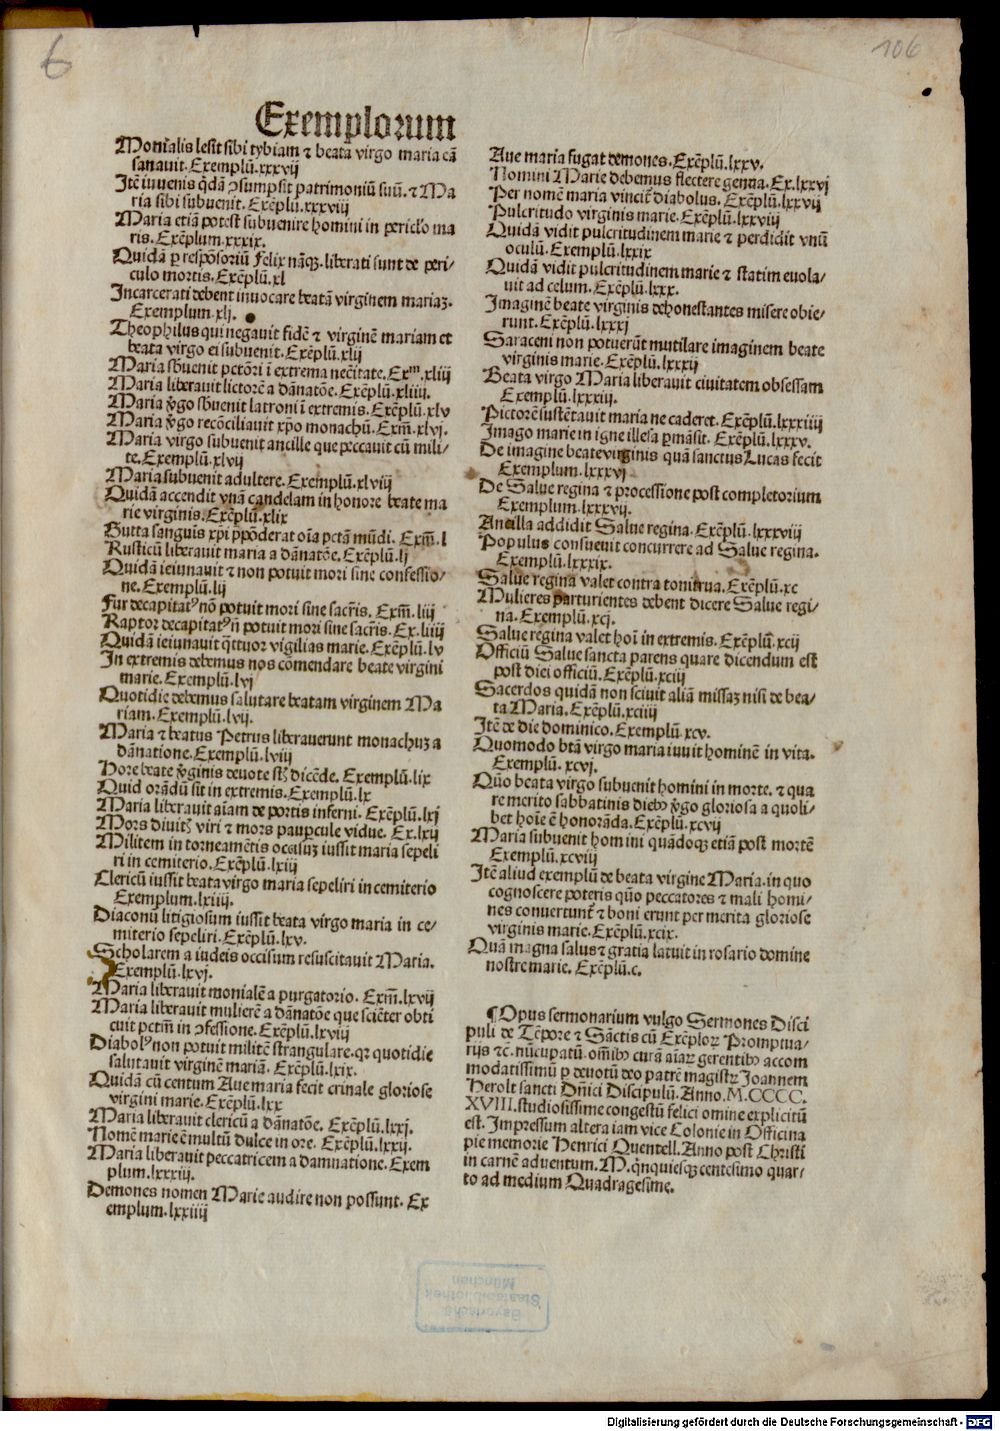 6
106
Exemplorum
Monialis lesit sibi tybiam ⁊ beata virgo maria eā
sanauit. Exemplū. xxxvij
Itē iuuenis q̄dā ɔsumpsit patrimoniū suū. ⁊ Ma
ria sibi subuenit. Exēplū. xxxviij
Maria etiā potest subuenire homini in pericl'o ma
ris. Exēplum. xxxix.
Quidā ꝑ respōsoriū Felix nāqꝫ. liberati sunt de peri⸗
culo mortis. Exēplū. xl
Incarcerati debent inuocare beatā virginem mariaꝫ.
Exemplum. xlj.
Theophilus qui negauit fidē ⁊ virginē mariam et
beata virgo ei subuenit. Exēplū. xlij
Maria sb̄uenit pctōri ī extrema necītate. Exᵐ. xliij
Maria liberauit lictorē a dānatōe. Exēplū. xliiij.
Maria v̄go sb̄uenit latroni ī extremis. Exēplū. xlv
Maria v̄go recōciliauit xp̄o monachū. Exm̄. xlvj.
Maria virgo subuenit ancille que peccauit cū mili⸗
te. Exemplū. xlvij
Maria subuenit adultere. Exemplū. xlviij
Quidā accendit vnā candelam in honore beate ma
rie virginis. Exēplū. xlix
Gutta sanguīs xp̄i p̄pōderat oīa pctā mūdi. Exm̄. l
Rusticū liberauit maria a dānatōe. Exēplū. lj
Quidā ieiunauit ⁊ non potuit mori sine confessio⸗
ne. Exemplū. lij
Fur decapitat⁹ nō potuit mori sine sacr̄is. Exm̄. liij
Raptor decapitat⁹ n̄ potuit mori sine sacr̄is. Ex. liiij
Quidā ieiunauit q̄ttuor vigilias marie. Exēplū. lv
In extremis debemus nos cōmendare beate virgini
marie. Exemplū. lvj
Quotidie debemus salutare beatam virginem Ma
riam. Exemplū. lvij.
Maria ⁊ beatus Petrus liberauerunt monachuꝫ a
dānatione. Exemplū. lviij
Hore beate v̄ginis deuote st̄ dicēde. Exemplū. lix
Quid orādū sit in extremis. Exemplū. lx
Maria liberauit aīam de portis inferni. Exēplū. lxj
Mors diuitꝭ viri ⁊ mors paupcule vidue. Ex. lxij
Militem in torneamētis occisuꝫ iussit maria sepeli
ri in cemiterio. Exēplū. lxiij
Clericū iussit beata virgo maria sepeliri in cemiterio
Exemplum. lxiiij.
Diaconū litigiosum iussit beata virgo maria in ce⸗
miterio sepeliri. Exēplū. lxv.
Scholarem a iudeis occisum resuscitauit Maria.
Exemplū. lxvj.
Maria liberauit monialē a purgatorio. Exm̄. lxvij
Maria liberauit mulierē a dānatōe que sciēter obti
cuit pctm̄ in ɔfessione. Exēplū. lxviij
Diabol⁹ non potuit militē strangulare. qꝛ quotidie
salutauit virginē mariā. Exēplū. lxix.
Quidā cū centum Aue maria fecit crinale gloriose
virgini marie. Exēplū. lxx
Maria liberauit clericū a dānatōe. Exēplū. lxxj.
Nomē marie ē multū dulce in ore. Exēplū. lxxij.
Maria liberauit peccatricem a damnatione. Exem
plum. lxxiij.
Demones nomen Marie audire non possunt. Ex
emplum. lxxiiij
Aue maria fugat demones. Exēplū. lxxv.
Nomini Marie debemus flectere genua. Ex. lxxvj
Per nomē maria vincit᷑ diabolus. Exēplū. lxxvij
Pulcritudo virginis marie. Exēplū. lxxviij
Quidā vidit pulcritudinem marie ⁊ perdidit vnū
oculū. Exemplū. lxxix
Quidā vidit pulcritudinem marie ⁊ statim euola⸗
uit ad celum. Exēplū. lxxx.
Imaginē beate virginis dehonestantes misere obie⸗
runt. Exēplū. lxxxj
Saraceni non potuerūt mutilare imaginem beate
virginis marie. Exēplū. lxxxij
Beata virgo Maria liberauit ciuitatem obsessam
Exemplū. lxxxiij.
Pictorē sustētauit maria ne caderet. Exēplū. lxxxiiij
Imago marie in igne illesa ꝑmāsit. Exēplū. lxxxv.
De imagine beate virginis quā sanctus Lucas fecit
Exemplum. lxxxvj
De Salue regina ⁊ processione post completorium
Exemplum. lxxxvij.
Ancilla addidit Salue regina. Exēplū. lxxxviij
Populus consueuit concurrere ad Salue regina.
Exemplū. lxxxix.
Salue regina valet contra tonitrua. Exēplū. xc
Mulieres parturientes debent dicere Salue regi⸗
na. Exemplū. xcj.
Salue regina valet hoī in extremis. Exēplū. xcij
Officiū Salue sancta parens quare dicendum est
post diei officiū. Exēplū. xciij
Sacerdos quidā non sciuit aliā missaꝫ nisi de bea⸗
ta Maria. Exēplū. xciiij
Itē de die dominico. Exemplū. xcv.
Quomodo btā virgo maria iuuit hominē in vita.
Exemplū. xcvj.
Quō beata virgo subuenit homini in morte. ⁊ qua
re merito sabbatinis diebꝰ v̄go gloriosa a quoli⸗
bet hoīe ē honorāda. Exēplū. xcvij
Maria subuenit homini quādoqꝫ etiā post mortē
Exemplū. xcviij
Itē aliud exemplū de beata virgine Maria. in quo
cognoscere poteris quō peccatores ⁊ mali homi⸗
nes conuertunt᷑ ⁊ boni erunt per merita gloriose
virginis marie. Exēplū. xcix.
Quā magna salus ⁊ gratia latuit in rosario domine
nostre marie. Exēplū. c.
¶Opus sermonarium vulgo Sermones Disci
puli de Tēpore ⁊ Sāctis cū Exēploꝝ Promptua⸗
rijs ⁊c̄. nūcupatū. om̄ibꝰ curā aīaꝝ gerentibꝰ accom
modatissimū ꝑ deuotū deo patrē magistꝝ Joannem
Herolt sancti Dn̄ici Discipulū. Anno. M.CCCC.
XVIII. studiosissime congestū felici omine explicitū
est. Impressum altera iam vice Colonie in Officina
pie memorie Henrici Quentell. Anno post Christi
in carnē aduentum. M. q̄nquiesqꝫ centesimo quar⸗
to ad medium Quadragesime.
Bayerische
Staatsbibliothek
München
Digitalisierung gefördert durch die Deutsche Forschungsgemeinschaft - DFG